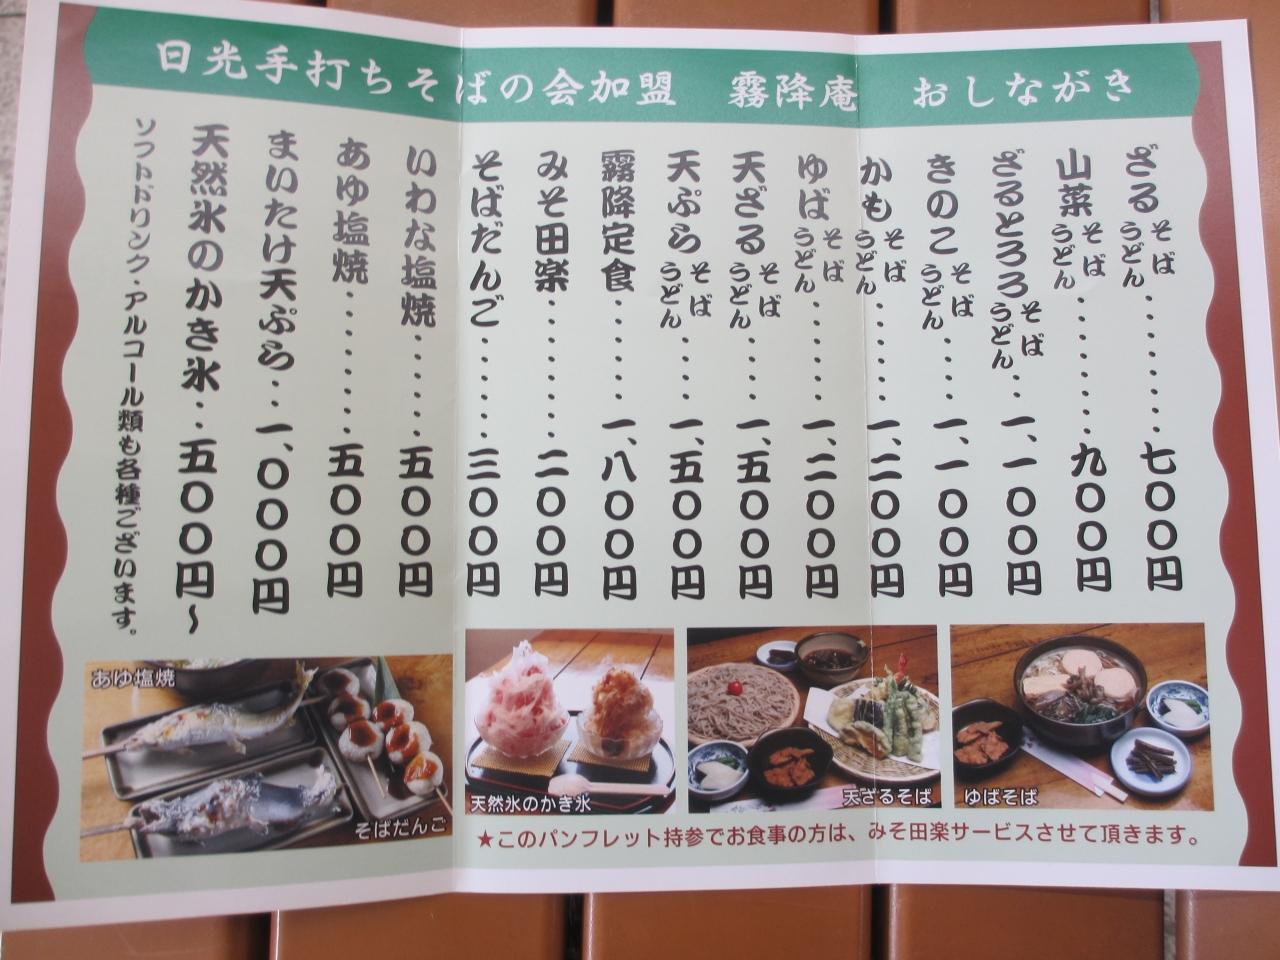 日光手打ちそばの会加盟　霧降庵　おしながき
ざるそばうどん・・・・・・・七〇〇円
山菜そばうどん・・・・・・・九〇〇円
ざるとろろそばうどん・・一、一〇〇円
きのこそばうどん・・・・一、一〇〇円
かもそばうどん・・・・・一、二〇〇円
ゆばそばうどん・・・・・一、二〇〇円
天ざるそばうどん・・・・一、五〇〇円
天ぷらそばうどん・・・・一、五〇〇円
霧降定食・・・・・一、八〇〇円
みそ田楽・・・・・・二〇〇円
そばだんご・・・・・三〇〇円
いわな塩焼・・・・・五〇〇円
あゆ塩焼・・・・・・・五〇〇円
まいたけ天ぷら・・一、〇〇〇円
天然氷のかき氷・・五〇〇円～
ソフトドリンク・アルコール類も各種ございます。
あゆ塩焼
そばだんご
天然氷のかき氷
天ざるそば
ゆばそば
★このパンフレット持参でお食事の方は、みそ田楽サービスさせて頂きます。